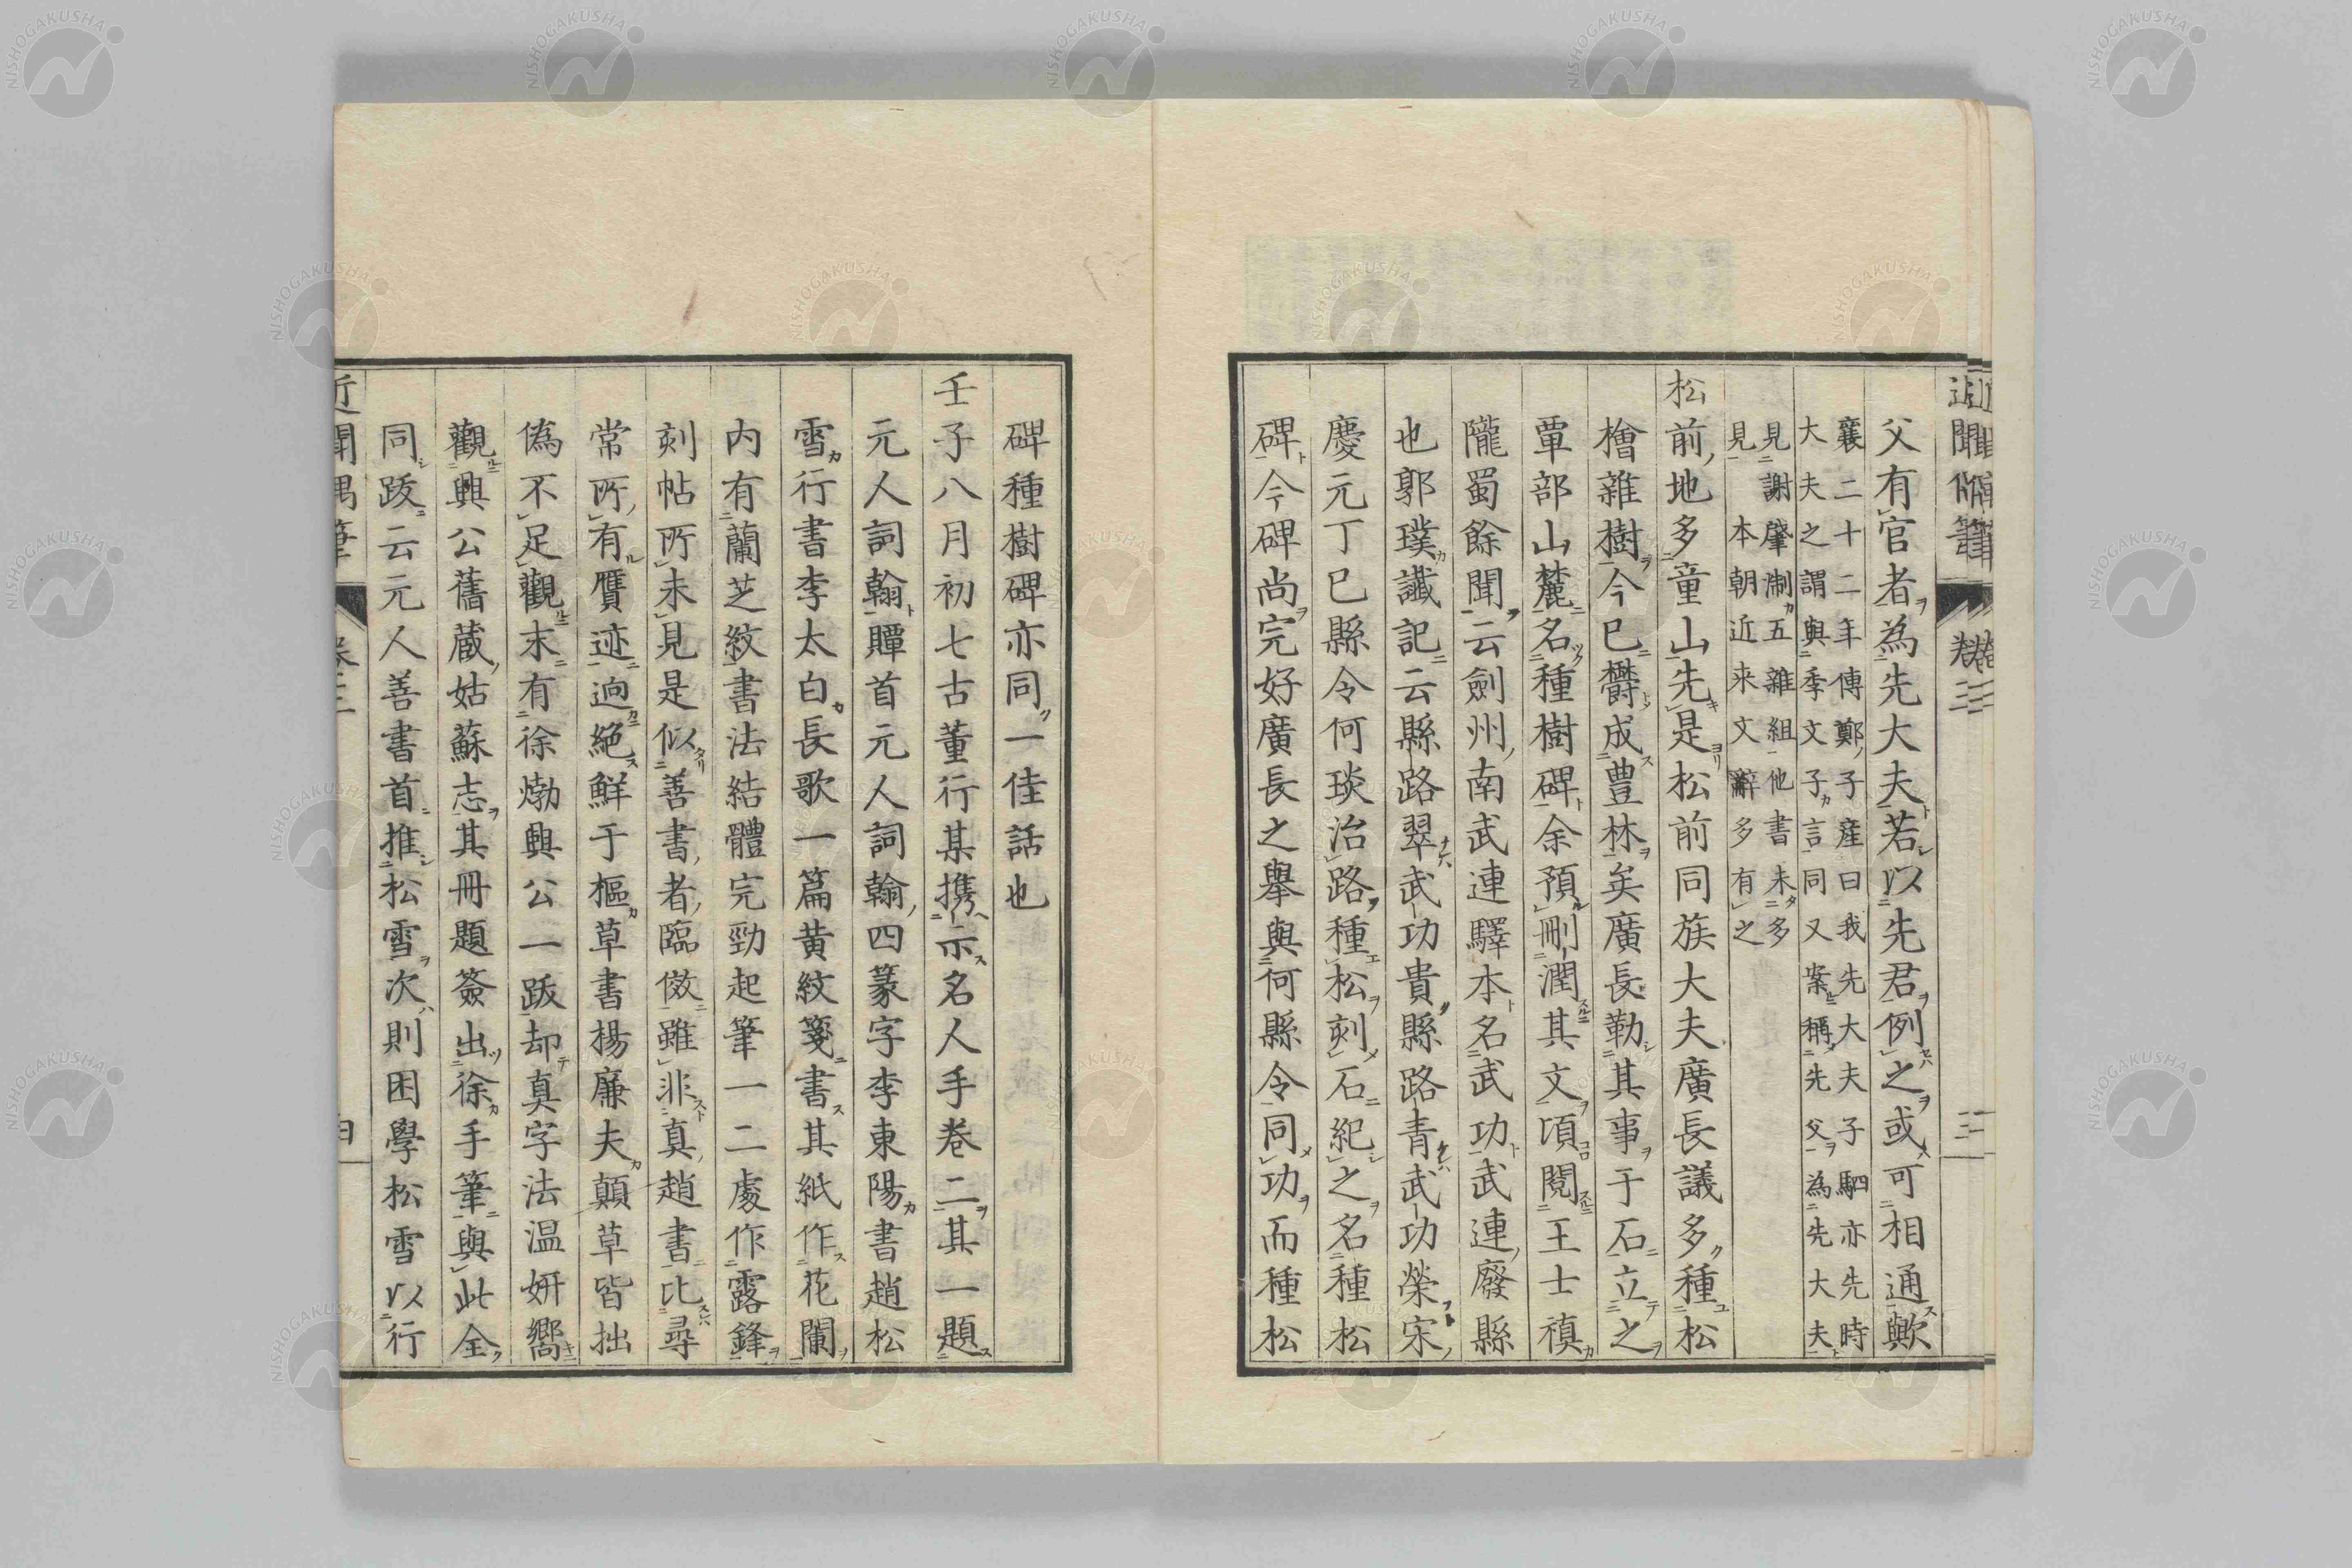 近聞偶筆 卷三 三
父有官者為先大夫若以先君例之或可相通歟
襄二十二年傳鄭子産曰我先大夫子駟亦先時
大夫之謂與季文子言同又案稱先父為先大夫
見謝肇淛五雜組他書未多
見本朝近来文辭多有之
松前地多童山先是松前同族大夫廣長議多種松
檜雜樹今已欝成豊林矣廣長勒其事于石立之
覃部山麓名種樹碑余預刪潤其文頃閱王士禛
隴蜀餘聞云劍州南武連驛本名武功武連廢縣
也郭璞讖記云縣路翠武功貴縣路青武功榮宋
慶元丁巳縣令何琰治路種松刻石紀之名種松
碑今碑尚完好廣長之舉與何縣令同功而種松
碑種樹碑亦同一佳話也
壬子八月初七古董行某携示名人手卷二其一題
元人詞翰贉首元人詞翰四篆字李東陽書趙松
雪行書李太白長歌一篇黄紋箋書其紙作花闌
内有蘭芝紋書法結體完勁起筆一二處作露鋒
刻帖所未見是似善書者臨倣雖非真趙書比尋
常所有贋迹逈絕鮮于樞草書楊廉夫顛草皆拙
偽不足觀末有徐㶿興公一跋却真字法温妍嚮
觀興公舊蔵姑蘇志其冊題簽出徐手筆與此全
同跋云元人善書首推松雪次則困學松雪以行
近聞偶筆 卷三 四